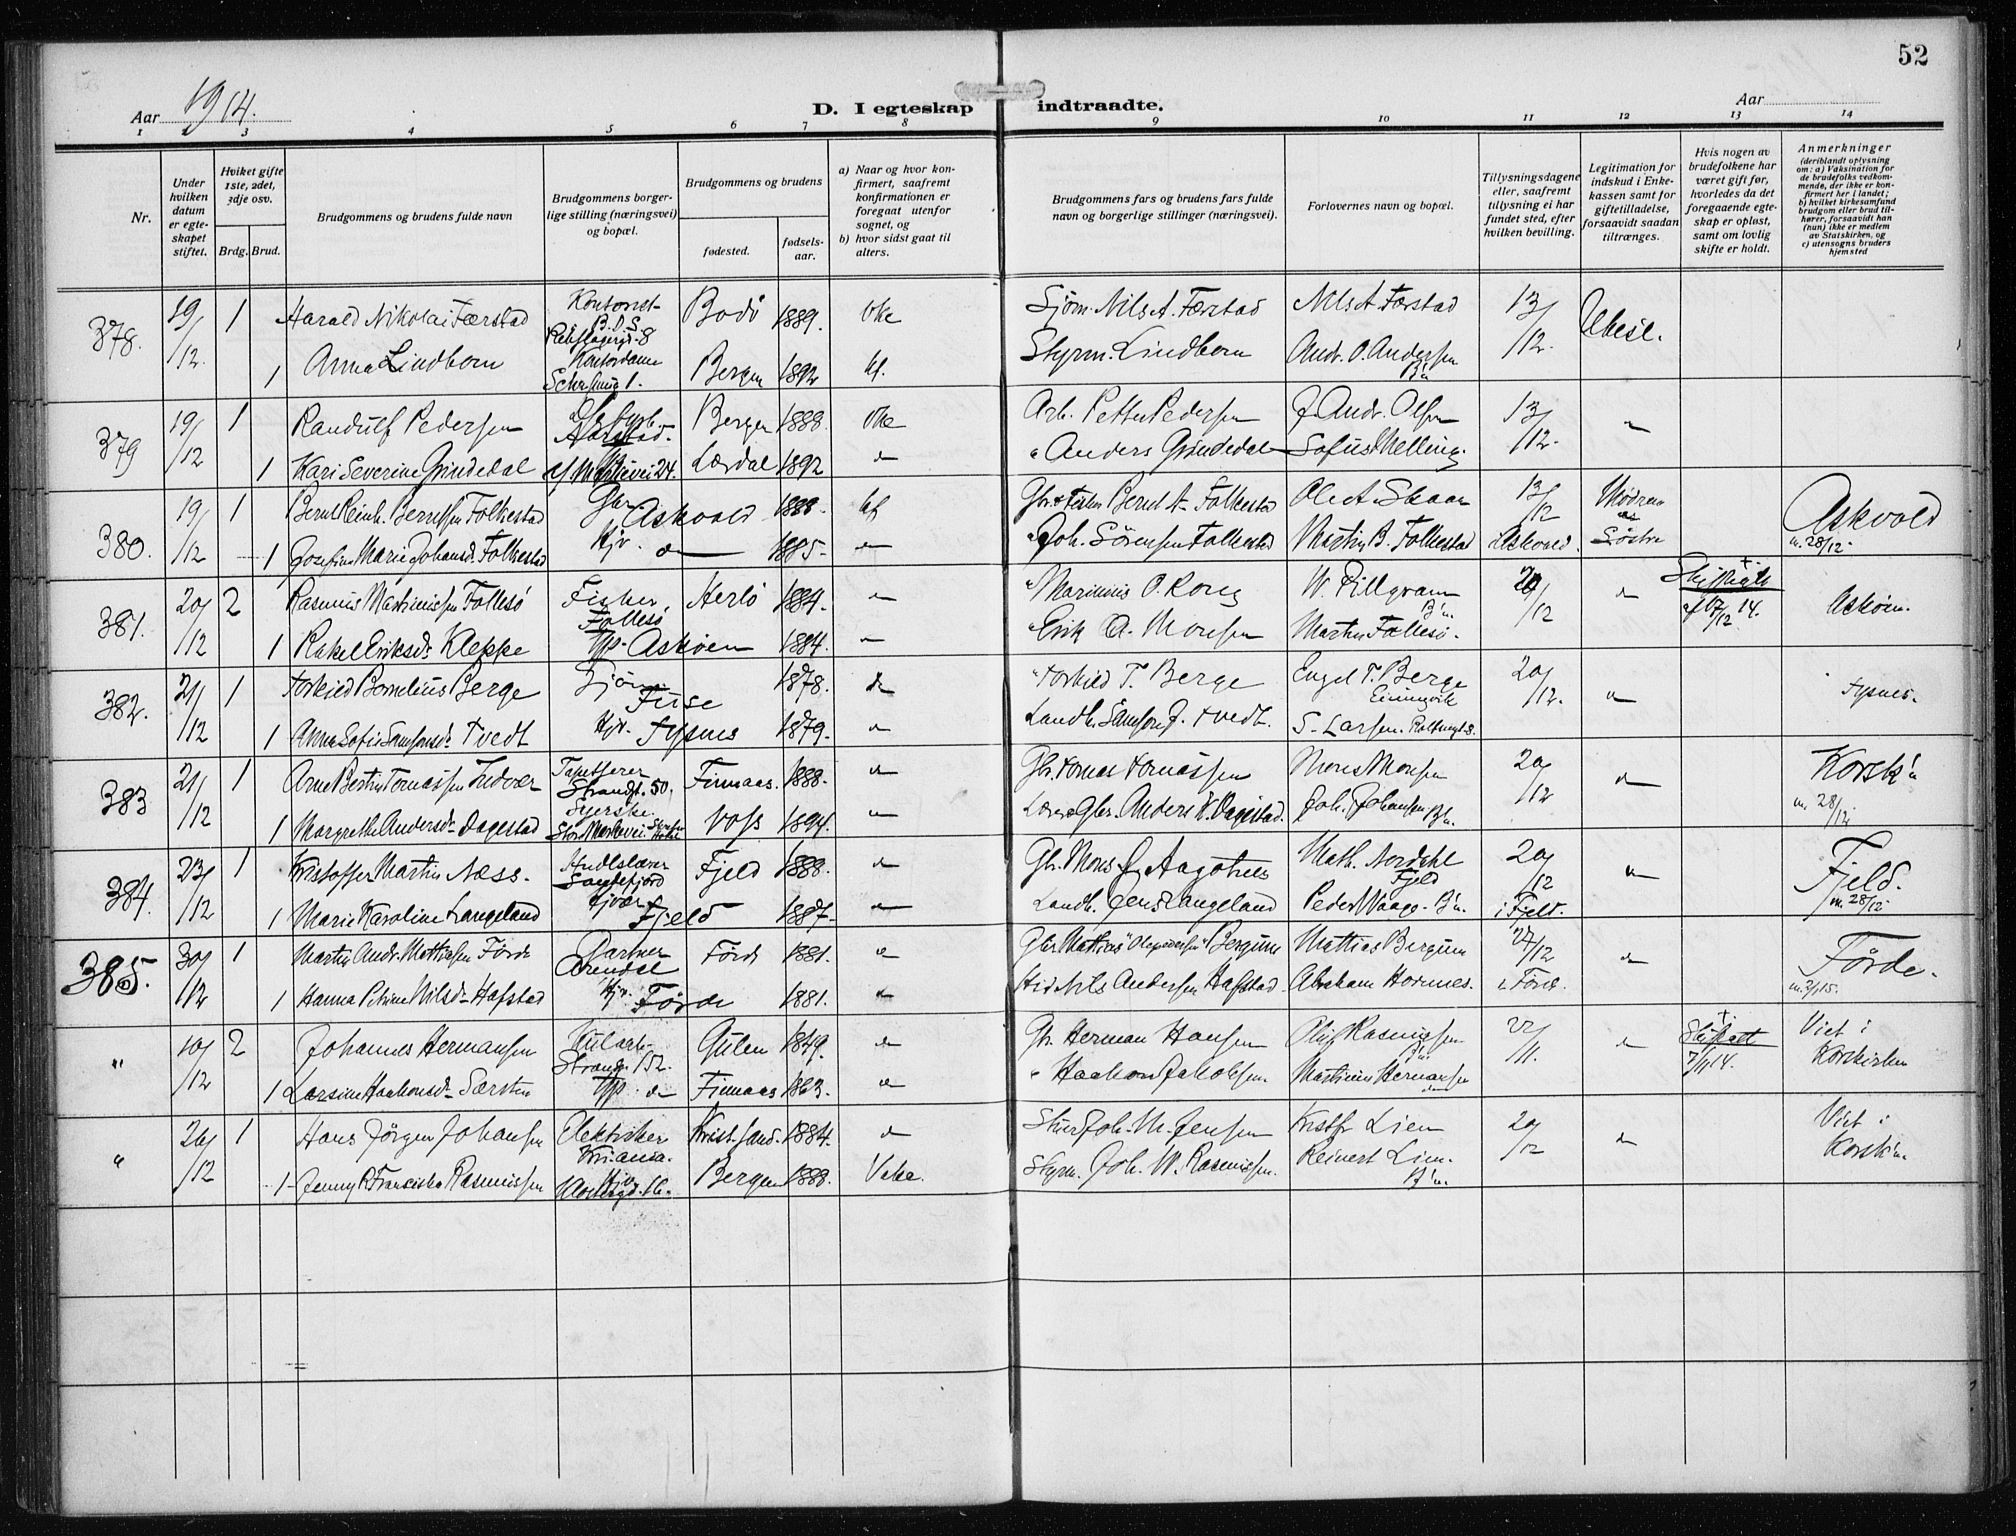 52
Aar 1914.
D. I egteskap indtraadte.
Aar
1 2 3 4 5 6 7 8 9 10 11 12 13 14
Nr.
Under hvilken datum er egteskapet stiftet.
Hviket gifte 1ste, 2det, 3dje osv.
Brdg. Brud.
Brudgommens og brudens fulde navn
Brudgommens borgerlige stilling (næringsvei) og bopæl.
Brudgommens og brudens
fødested.
fødselsaar.
a) Naar og hvor konfirmert, saafremt konfirmationen er foregaat utenfor sognet, og
b) hvor sidst gaat til alters.
Brudgommens fars og brudens fars fulde navn og borgerlige stillinger (næringsvei).
Forlovernes navn og bopæl.
Tillysningsdagene eller, saafremt tillysning ei har fundet sted, efter hvilken bevilling.
Legitimation for indskud i Enkekassen samt for giftetilladelse, forsaavidt saadan tiltrænges.
Hvis nogen av brudefolkene har været gift før, hvorledes da det foregaaende egteskap er opløst, samt om lovlig skifte er holdt.
Anmerkninger
(deriblandt oplysning om: a) Vaksination for de brudefolks vedkommende, der ikke er konfirmert her i landet; b) hvilket kirkesamfund brudgom eller brud tilhører, forsaavidt han (hun) ikke er medlem av Statskirken, og c) utensogns bruders hjemsted
378. 19/12. 1 Harald Nikolai Færstad B.D.S. Bodö 1889. Sjöm. Nils A. Færstad Nils A. Færstad 13/12.
1 Anna Lindborn Kontordame Bergen 1892 Styrm. Lindborn Andr. O. Andersen B'n
379 19/12 1 Randulf Pedersen Bergen 1888. Arb. Petter Pedersen J. Andr. Olsen 13/12. "
1 Kari Severine Grindedal Lærdal 1892 " " Anders Grindedal Sofus Melling.
380. 19/12 1 Bernt Reinh. Berntsen Folkestad Gbr Askvold 1888. Bernt A. Folkestad Ole A. Skaar 13/12 Askvold
1 Josefine Marie Johansd. Folkestad Hjv. " 1885 " Joh. Sörensen Folkestad Martin B. Folkestad i Askvold. Söstre m. 28/12
381. 20/12 2 Rasmus Martinussen Follesö Fisker. Follesö Herlö 1884. " " Marinius O. Rong W. Pillgram B'n 20/12 " 17/12 14. Askøen.
1 Rakel Eriksd. Kleppe Askøen 1884. " " Erik A. Monsen Martin Follesö.
382. 21/12 1 Torkild Bornelius Berge Fuse 1878. " " Torkild T. Berge Engel T. Berge 20/12. " Tysnes.
1 Anna Sofie Samsonsd. Tvedt Hjv. Tysnes 1879. " Landh. Samson J. Tvedt. S. Larsen.
383 21/12 1 Arne Bertin Tomassen Indvær Tapetserer Strandgt. 50. Finnaas. 1888. " Gbr. Tomas Tomassen Mons Monsen 20/12 " Korsk'n
1 Margrethe Andersd. Dagestad Syerske. Voss 1894. " Anders K. Dagestad. Joh. Johansen B'n. m. 28/12
384. 23/12 1 Kristoffer Martin Næss. Sandefjord Fjeld 1888. " Gbr. Mons J. Aagotnes Math. Nordahl Fjeld 20/12 " Fjeld.
1 Marie Karoline Langeland Fjeld 1887. " Landh. Jens Langeland Peder Waage B'n. i Fjeld. m. 28/12
385. 30/12 1 Martin Andr. Mathiasen Förde Gartner Arendal Förde 1881. " Gbr Mathias "Olepedersen" Bergum Mathias Bergum 27/12 " Förde.
1 Hanna Petrine Nilsd. Hafstad Hjv. Förde 1881. " Nils Andersen Hafstad. Abraham Hornnes. i Förde. m. 2/1 15.
" 10/12 2 Johannes Hermansen Kularb. Strandgt. 152. Gulen 1849. " Gb. Herman Hansen Oluf Rasmussen B'n 22/11. " Skiftet 7/11 14. Viet i Korskirken
1 Larsine Haakonsd. Særsten " Finnaas 1863. " " Haakon Jakobsen. Martinus Hermansen
" 26/12 1 Hans Jörgen Johansen Elektriker Kr.ania. Krist.sand. 1884. " Joh. M. Jensen Kristf. Lien 20/12 " Viet i Korsk'n.
1 Jenny R. Franciska Rasmussen Hjv Bergen 1888. Styrm. Joh. W. Rasmussen. Reinert Lien. B'n.